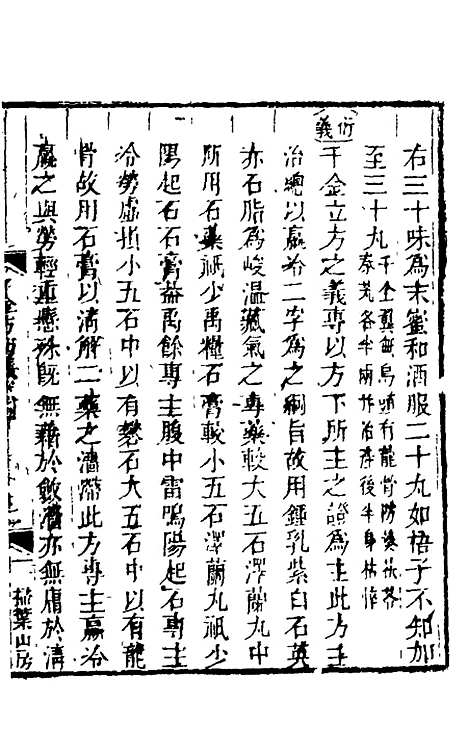 右三十味爲末蜜和酒服二十丸如梧子不知加
至三十丸千金翼無烏頭有龍骨防葵茯苓
秦艽各半兩作治產後半身枯悴
衍義
千金立方之義專以方下所主之證爲主此方主
治總以羸冷二字爲之綱旨故用鍾乳紫白石英
赤石脂爲峻溫臟氣之專藥較大五石澤蘭丸中
所用石藥祇少禹糧石膏較小五石澤蘭丸祇少
陽起石石膏蓋禹餘專主腹中雷鳴陽起石專主
冷勞虛損小五石中以有礬石大五石中以有龍
骨故用石膏以清解二藥之濇滯此方專主羸冷
羸之與勞輕重懸殊既無藉於斂濇亦無庸於清
千金方衍義
掃葉山房